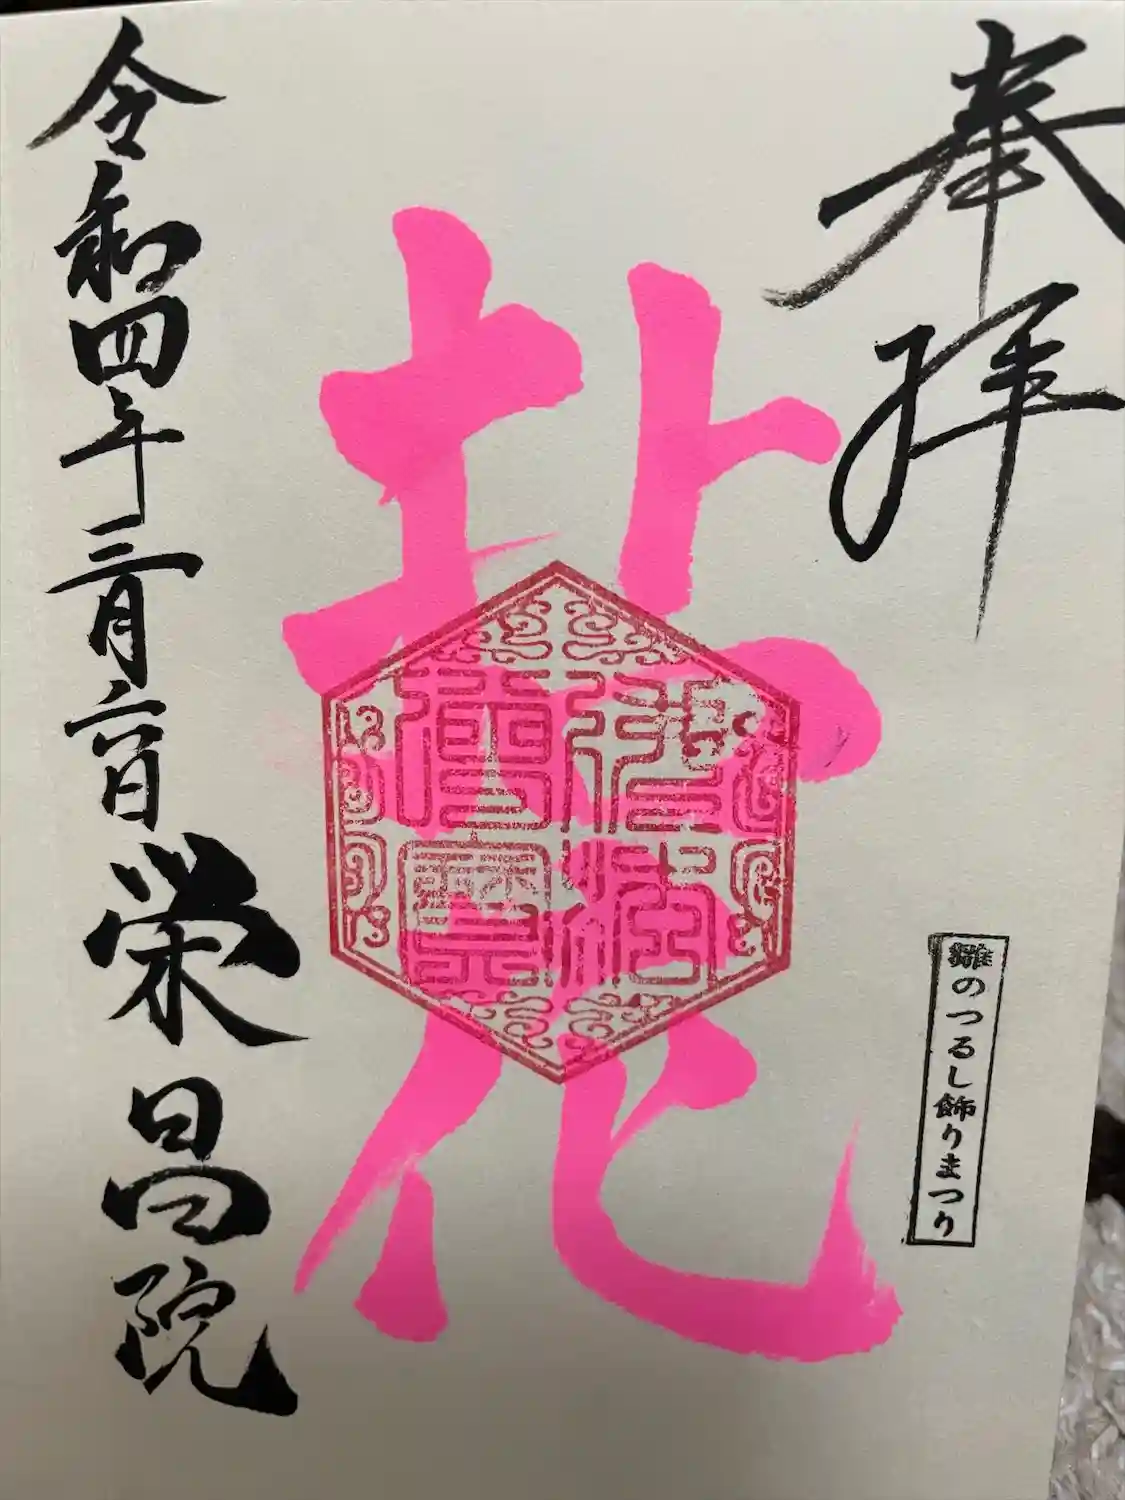 奉拝
雛のつるし飾りまつり
花
佛法僧寳
令和四年三月六日
栄昌院